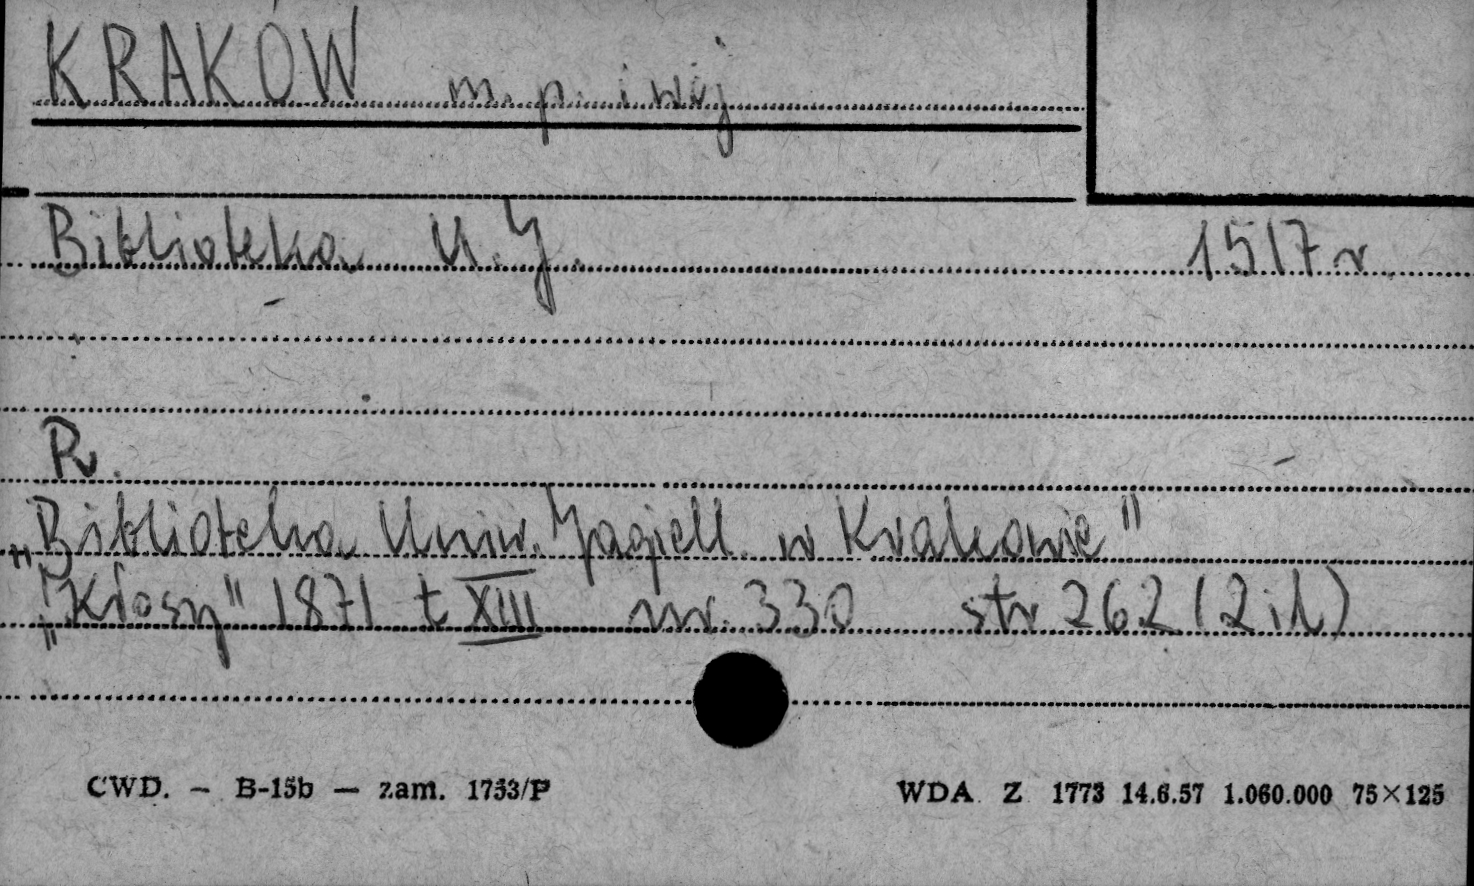 KRAKÓW m. p. i woj
Biblioteka U.J. 1517 r.
R.
„Biblioteka Uniw. Jagiell. w Krakowie"
„Kłosy" 1871 t XIII nr. 330 str 262 (2 il)
CWD. — B-15b — zam. 1753/P
WDA Z 1773 14.6.57 1.060.000 75×125